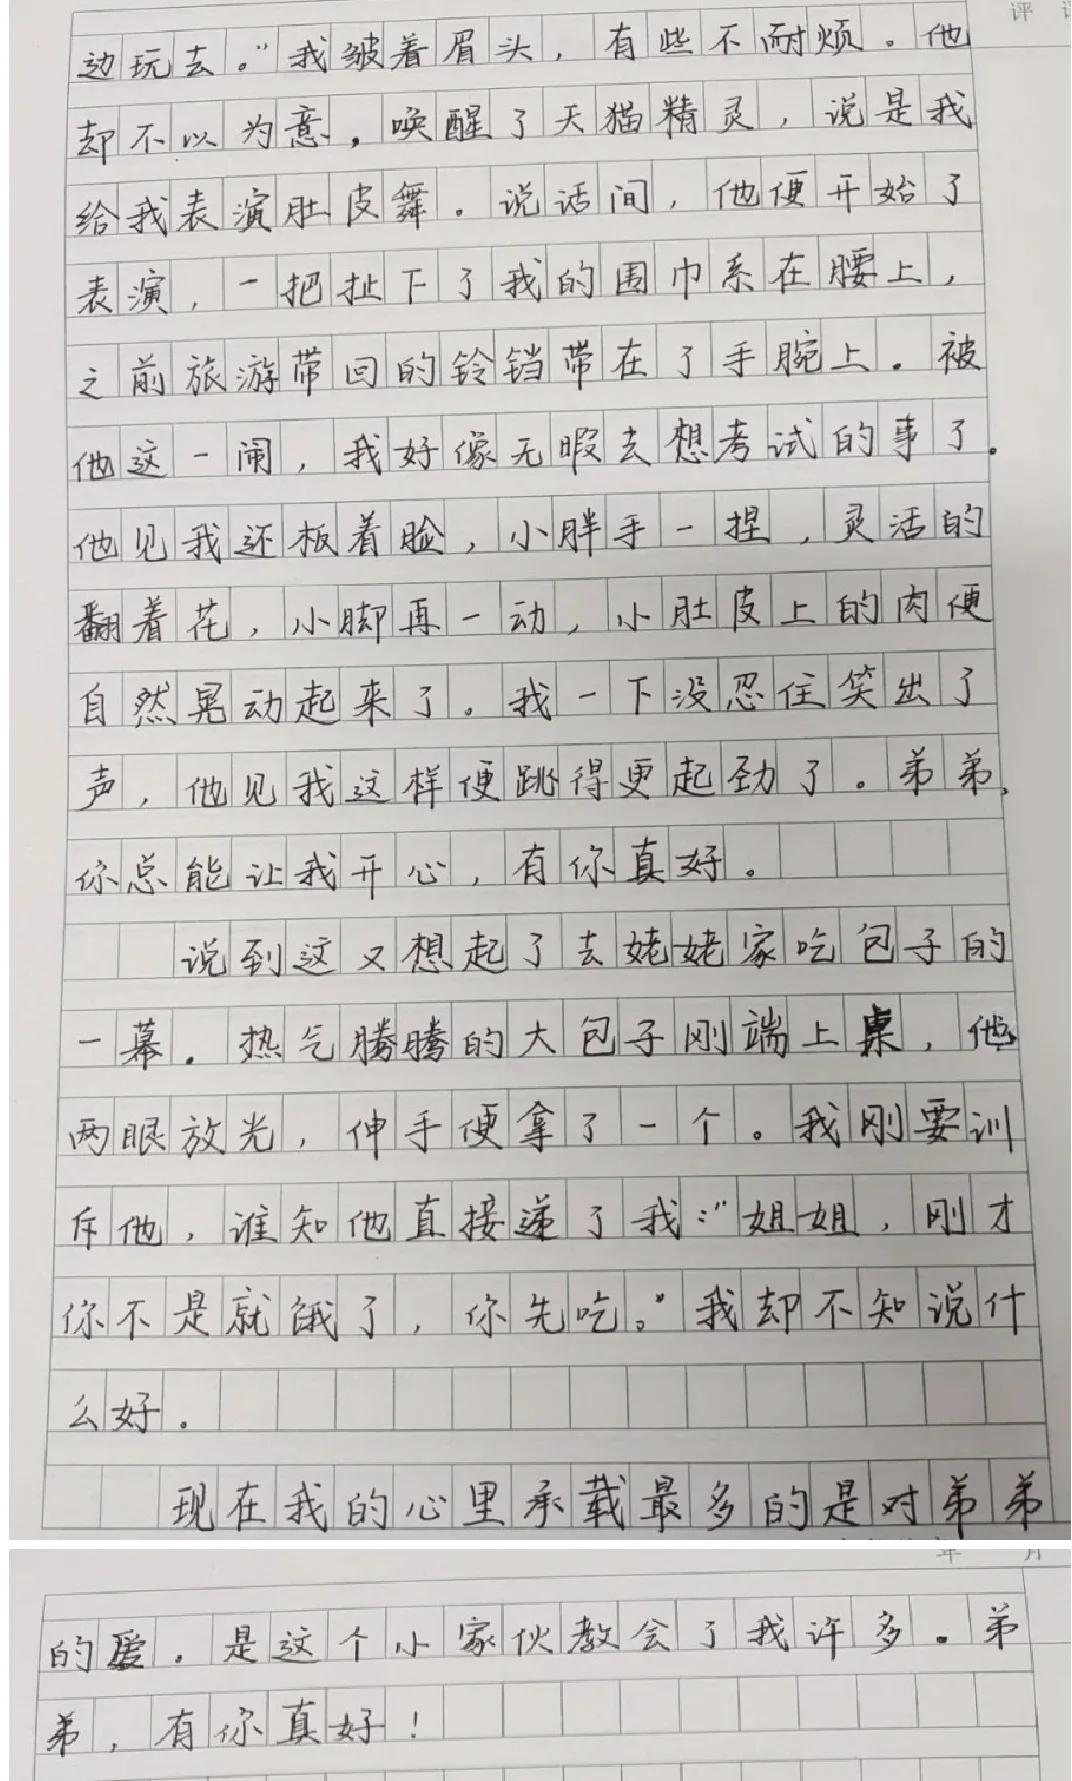 评
边玩去。”我皱着眉头，有些不耐烦。他
却不以为意，唤醒了天猫精灵，说是我
给我表演肚皮舞。说话间，他便开始了
表演，一把扯下了我的围巾系在腰上，
之前旅游带回的铃铛带在了手腕上。被
他这一闹，我好像无暇去想考试的事了。
他见我还板着脸，小胖手一捏，灵活的
翻着花，小脚再一动，小肚皮上的肉便
自然晃动起来了。我一下没忍住笑出了
声，他见我这样便跳得更起劲了。弟弟，
你总能让我开心，有你真好。
说到这又想起了去姥姥家吃包子的
一幕。热气腾腾的大包子刚端上桌，他
两眼放光，伸手便拿了一个。我刚要训
斥他，谁知他直接递了我：“姐姐，刚才
你不是就饿了，你先吃。”我却不知说什
么好。
现在我的心里承载最多的是对弟弟
年 月
的爱。是这个小家伙教会了我许多。弟
弟，有你真好！